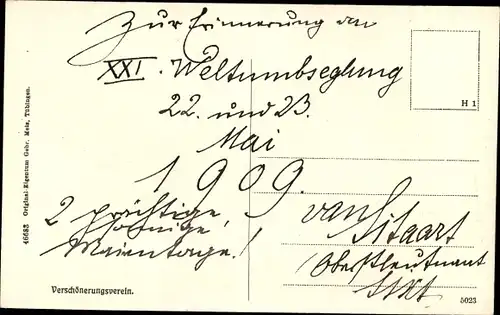 Zur Erinnerung an
XXI. Weltumbseglung
22. und 23.
Mai
1909.
2 prächtige,
sonnige,
Maientage!
van Sittaart
Oberstleutnant
H 1
46683 Original-Eigentum Gebr. Metz, Tübingen.
Verschönerungsverein.
5023